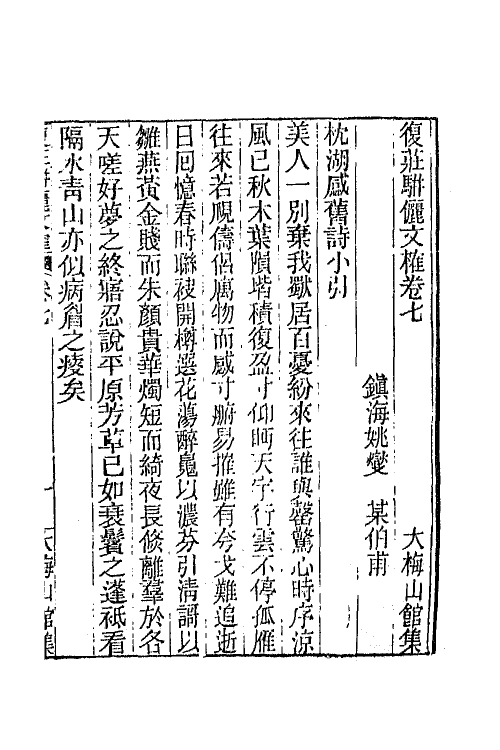 復莊駢儷文榷卷七　大梅山館集
鎮海姚燮　某伯甫
枕湖感舊詩小引
美人一別棄我獸居百憂紛來往誰與罄驚心時序涼
風已秋木葉隕堦積復盈寸仰眄天宇行雲不停孤雁
往來若覛儔侶寓物而感寸腑易摧雖有兮戈難追逝
日回憶春時聯袂開樽選花蕩醉鳧以濃芬引淸謌以
雛燕黃金賤而朱顏貴華燭短而綺夜長倐離羣於各
天嗟好夢之終寤忍說平原芳草已如衰鬢之蓬祇看
隔水靑山亦似病眉之痠矣
大梅山館集